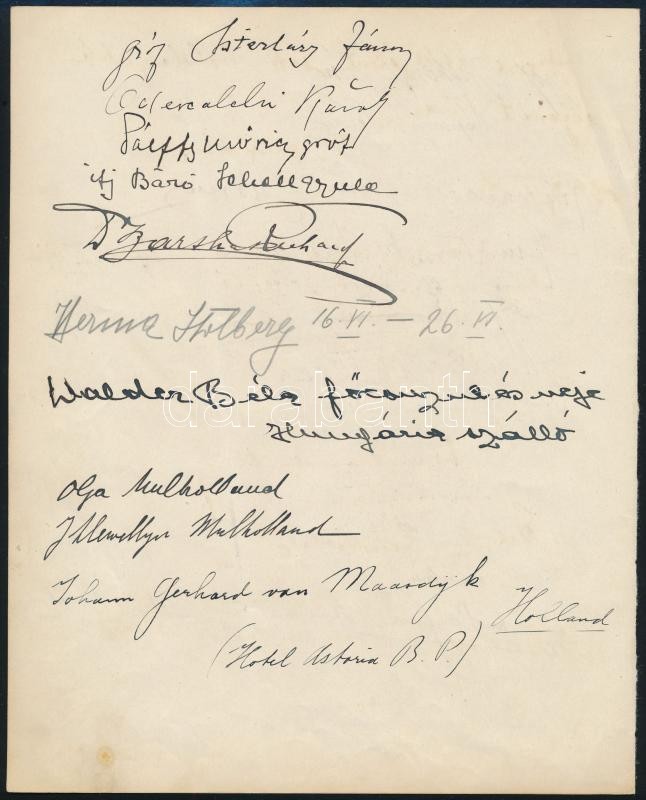 gróf Esterházy János
Károly
Pálffy Móricz gróf
ifj Báró Schell Gyula
Dr
Herma Stolberg 16. VI. – 26. VI.
Walder Béla főkonzul és neje
Hungária szálló
Olga Mulholland
J Llewellyn Mulholland
Johann Gerhard van Maasdijk
Holland
(Hotel Astoria B. P.)
darabanth